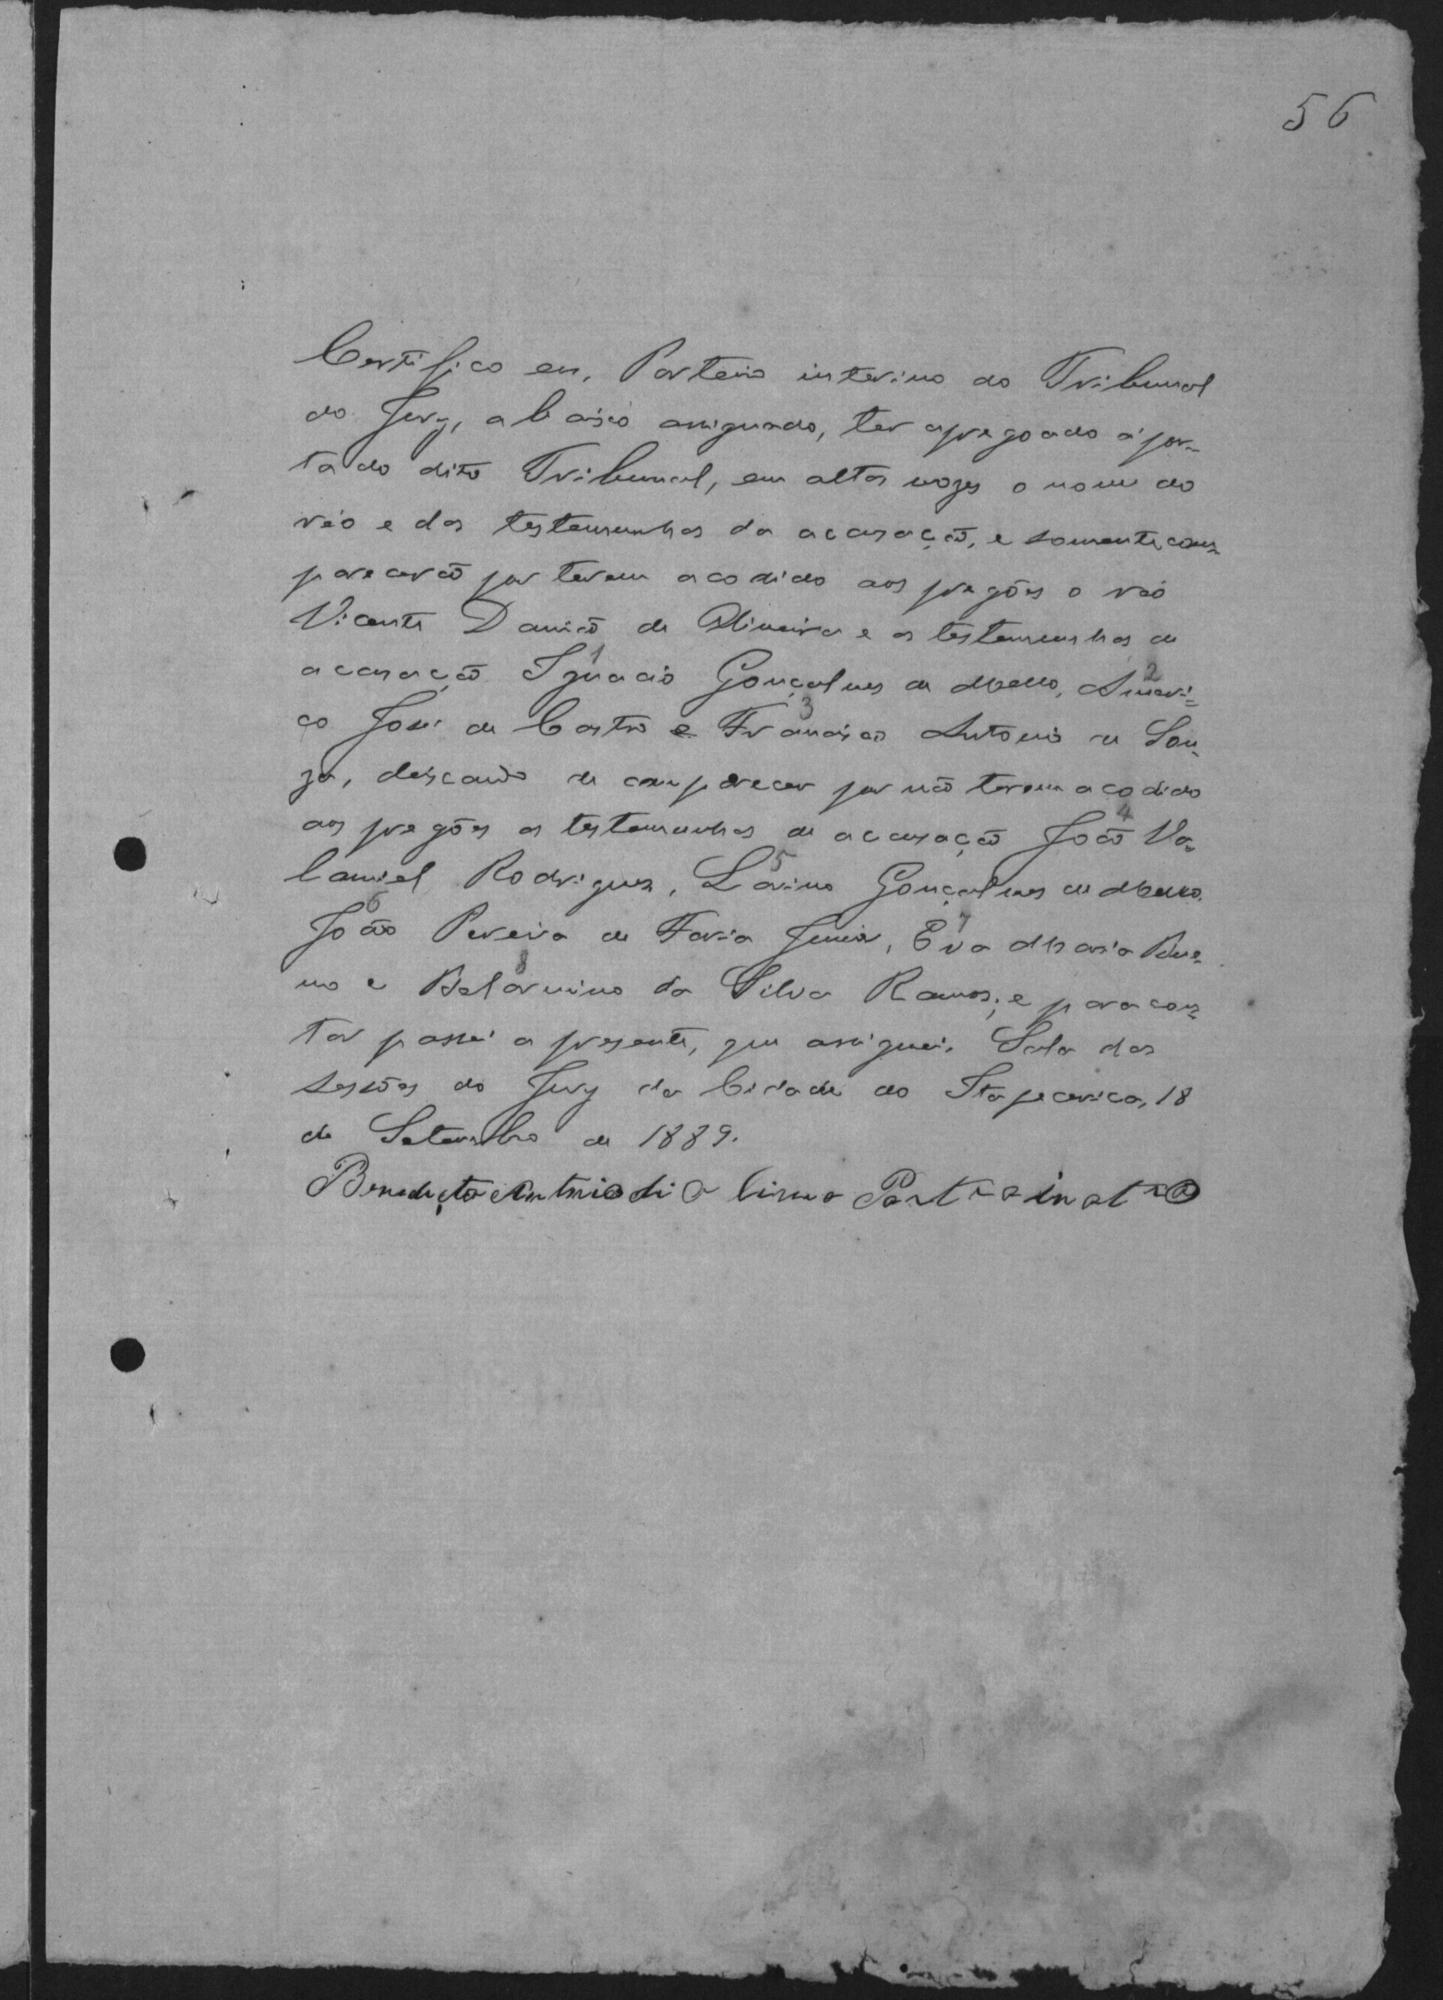 56
Certifico eu, Porteiro interino do Tribunal
do Jury, abaixo assignado, ter apregoado á por-
ta do dito Tribunal, em altas vozes o nome do
réo e das testemunhas da accusação, e somente com-
parecerão por terem acodido aos pregões o réo
Vicente Damião de Oliveira e as testemunhas de
accusação Ignacio Gonçalves de Mello, Ameri=
1 2
co José de Castro e Francisco Antonio de Sou-
3
za, deixando de comparecer por não terem acodido
aos pregões as testemunhas de accusação João Va-
4
lamiel Rodrigues, Lavino Gonçalves de Mello,
5
João Pereira de Faria Junior, Eva Maria Bue-
6 7
no e Belarmino da Silva Ramos; e para cons-
8
tar passei a presente, que assignei. Sala das
sessões do Jury da Cidade do Itapecerica, 18
de Setembro de 1889.
Benedicto Antonio di Lima